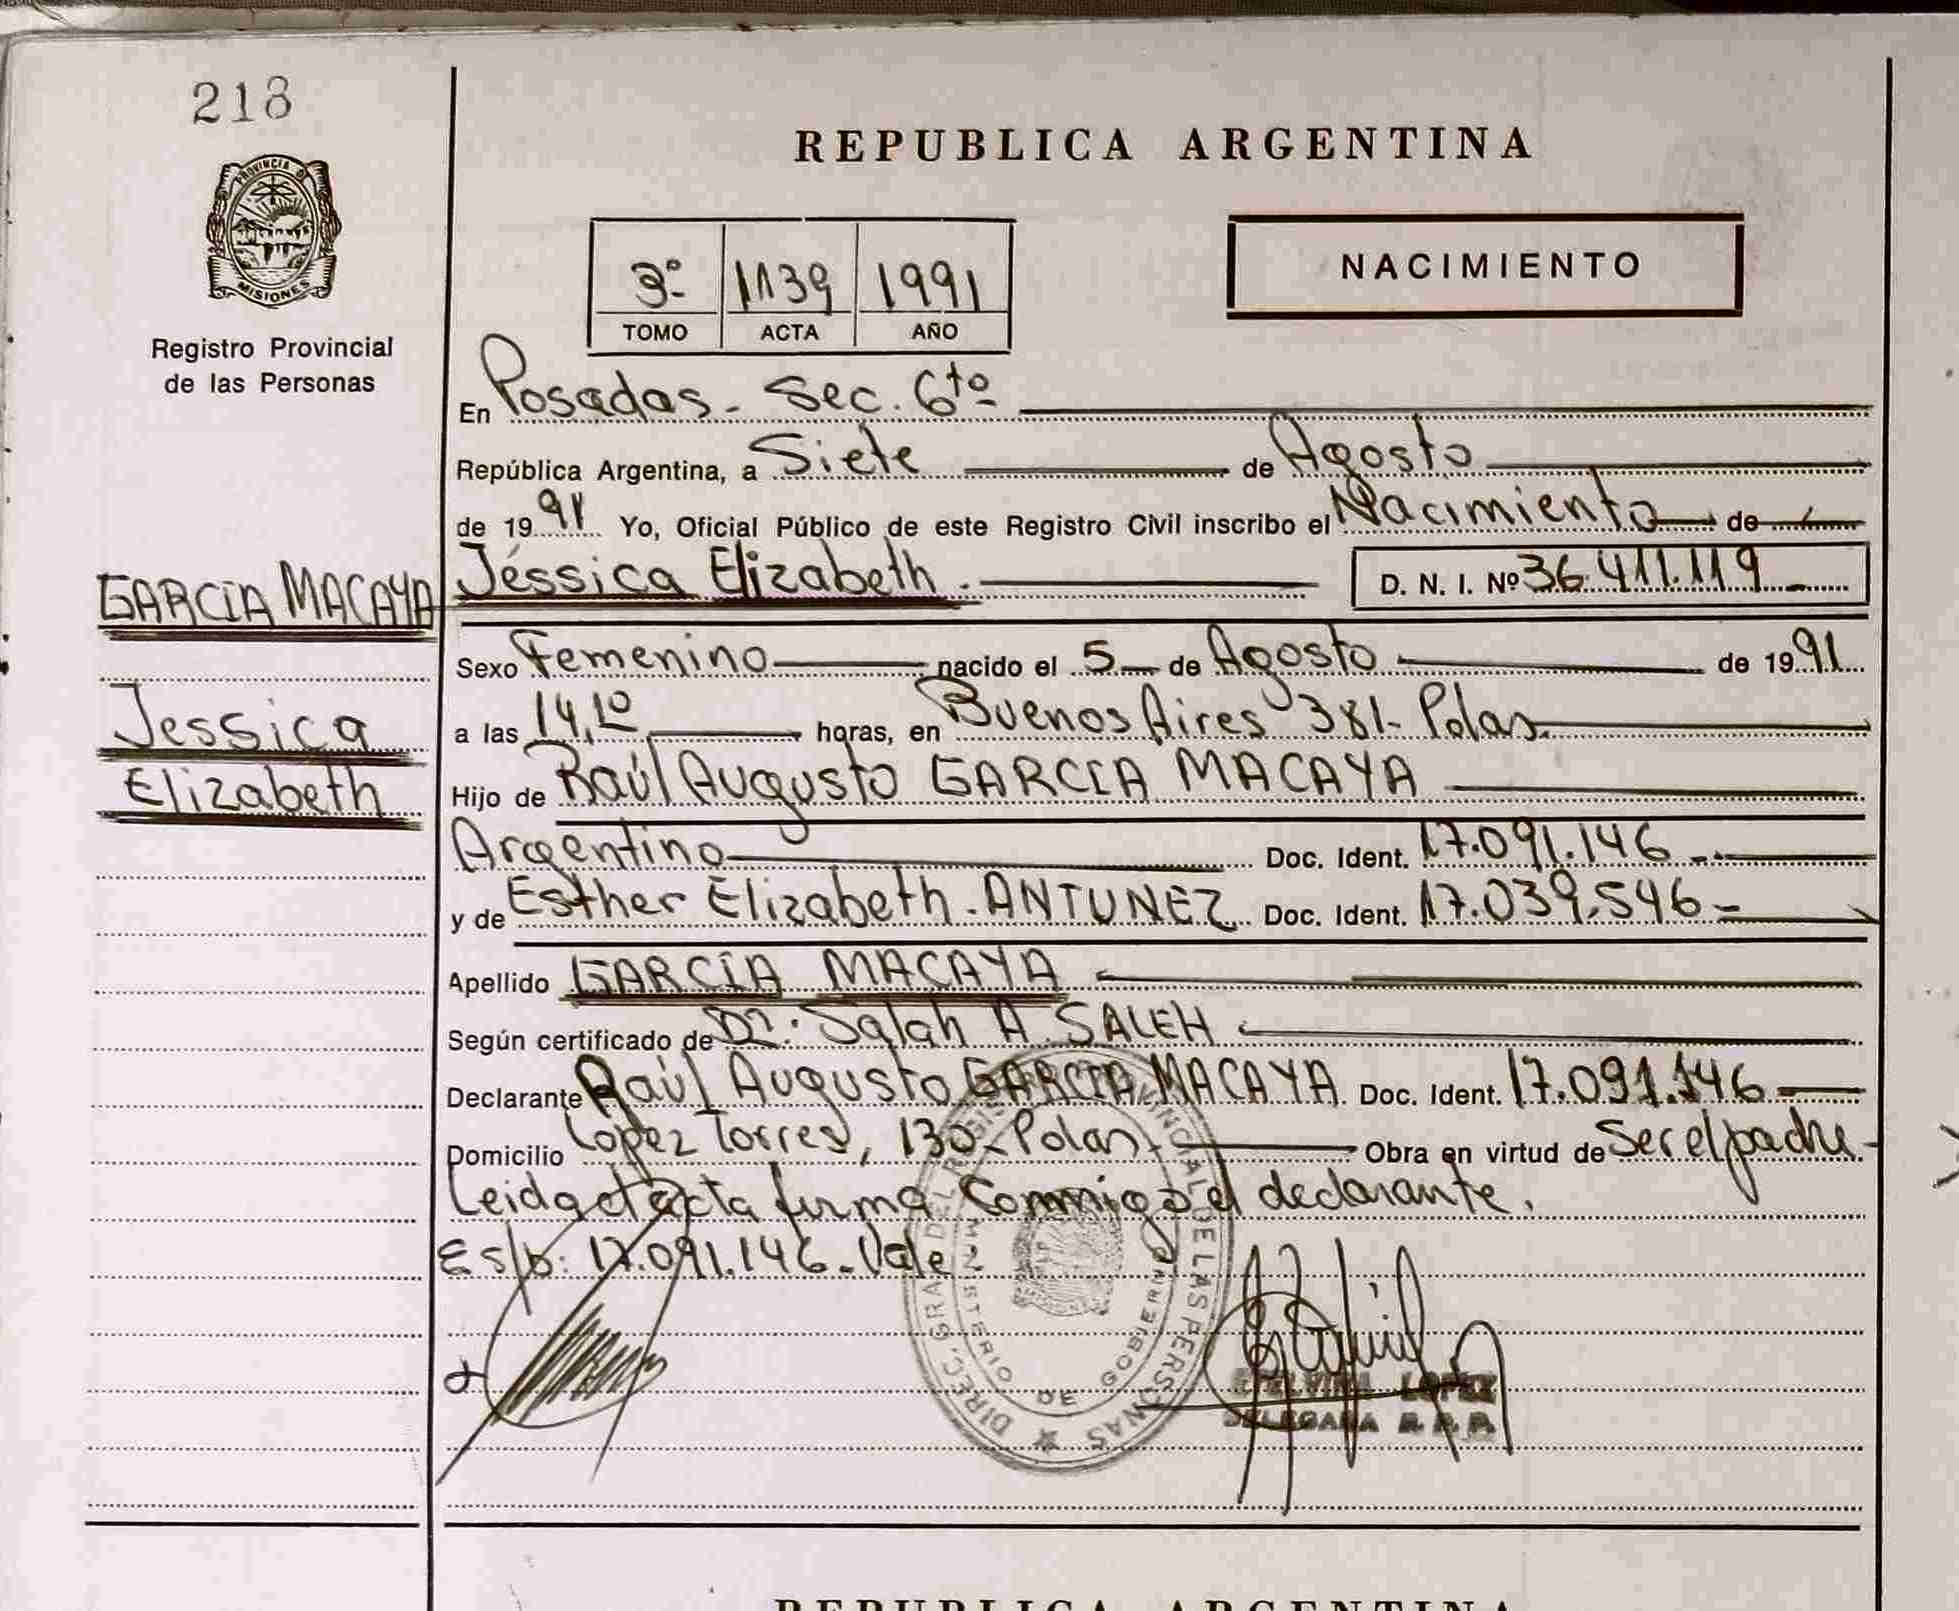 218
PROVINCIA DE
MISIONES
Registro Provincial
de las Personas
REPUBLICA ARGENTINA
NACIMIENTO
3º 1139 1991
TOMO ACTA AÑO
En Posadas - Sec. 6to
República Argentina, a Siete de Agosto
de 1991 Yo, Oficial Público de este Registro Civil inscribo el Nacimiento de
GARCIA MACAYA
Jessica
Elizabeth
Jéssica Elizabeth. D. N. I. Nº 36.411.119
Sexo Femenino nacido el 5 de Agosto de 1991
a las 14,10 horas, en Buenos Aires 381- Pdas.
Hijo de Raúl Augusto GARCIA MACAYA
Argentino Doc. Ident. 17.091.146
y de Esther Elizabeth. ANTUNEZ Doc. Ident. 17.039.546
Apellido GARCÍA MACAYA
Según certificado de Dr. Salah A. SALEH
Declarante Raúl Augusto GARCIA MACAYA Doc. Ident. 17.091.146
Domicilio Lopez Torres, 130- Pdas. Obra en virtud de Ser el padre
Leida el acta firma Conmigo el declarante.
E s/b: 17.091.146 - Vale
DIREC. GRAL DEL REGISTRO PROVINCIAL DE LAS PERSONAS
MINISTERIO DE GOBIERNO
ETELVINA LOPEZ
DELEGADA R.P.P.
REPUBLICA ARGENTINA